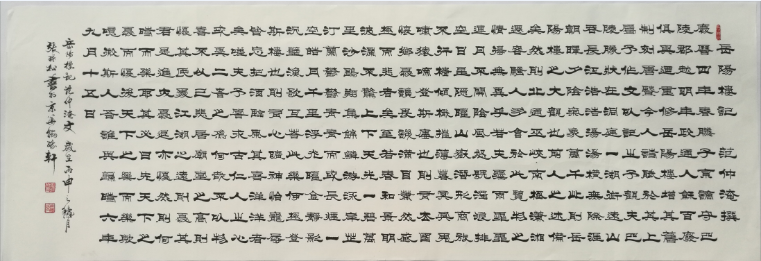 岳陽樓記 范仲淹撰
慶曆四年春滕子京謫守巴
陵郡越明年政通人和百廢
俱興乃重修岳陽樓增其舊
制刻唐賢今人詩賦於其上
屬予作文以記之予觀夫巴
陵勝狀在洞庭一湖銜遠山
吞長江浩浩湯湯橫無際涯
朝暉夕陰氣象萬千此則岳
陽樓之大觀也前人之述備
矣然則北通巫峽南極瀟湘
遷客騷人多會於此覽物之
情得無異乎若夫淫雨霏霏
連月不開陰風怒號濁浪排
空日星隱曜山岳潛形商旅
不行檣傾楫摧薄暮冥冥虎
嘯猿啼登斯樓也則有去國
懷鄉憂讒畏譏滿目蕭然感
極而悲者矣至若春和景明
波瀾不驚上下天光一碧萬
頃沙鷗翔集錦鱗游泳岸芷
汀蘭郁郁青青而或長煙一
空皓月千里浮光躍金靜影
沉璧漁歌互答此樂何極登
斯樓也則有心曠神怡寵辱
皆忘把酒臨風其喜洋洋者
矣嗟夫予嘗求古仁人之心
或異二者之為何哉不以物
喜不以己悲居廟堂之高則
憂其民處江湖之遠則憂其
君是進亦憂退亦憂然則何
時而樂耶其必曰先天下之
憂而憂後天下之樂而樂歟
噫微斯人吾誰與歸時六年
九月十五日
岳陽樓記范仲淹文 歲至丙申之臘月
張 松書於京華 軒